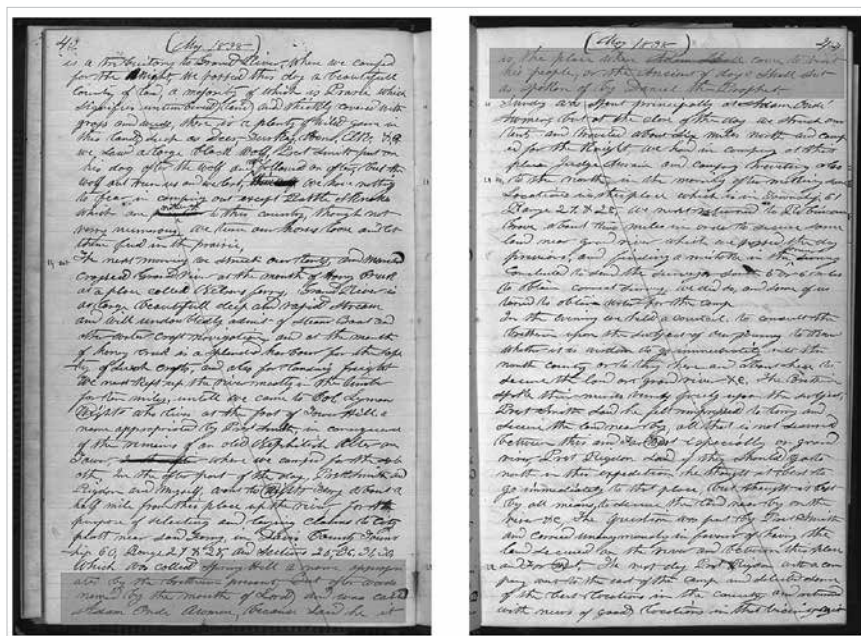 42 (May 1838)
is a tributary to Grand River, when we camped
for the Night, we passed this day a beautifull
Country of land, a majority of which is Prairie which
signifies untimbered land and thickly covered with
grass and weeds, there is a plenty of wild game in
this land, such as Deer, Turkey, Hens, Elk, &c.
we saw a large black wolf, Prest Smith put on
his dog after the wolf and we followed on after, but the
wolf out run us and we lost, we have nothing
to fear in camping out except Rattle Snakes
which are natural to this country, though not
very numerous. We turn our horses loose and let
them feed in the prairie,
The next morning we struck our tents, and
crossed Grand River at the mouth of Honey Creek
at a place called Nelsons ferry, Grand River is
a large beautifull deep and rapid Stream
and will undoubtedly admit of Steam Boat and
other water craft navigation, and at the mouth
of honey creek is a splendid harbour for the safe
ty of such crafts, and also for landing freight
We next kept up the river mostly in the timber
for ten miles, untill we came to Col. Lyman
Wights who lives at the foot of Tower Hill, a
name appropriated by Prest Smith, in consequence
of the remains of an old Nephitish Alter an
Tower, where we camped for the sab
ath. In the after part of the day, Prest Smith and
Rigdon and myself, went to Wights Ferry about a
half mile from this place up the river, for the
purpose of selecting and laying claims to City
platt near said Ferry, in Davis County Towns
hip 60, Range 27 & 28, and Sections 25, 36, 31, 30
Which was called Spring Hill a name appropri
ated by the bretheren present, But after wards
named by the mouth of Lord and was called
Adam Ondi Awmen, because said he it
(May 1838) 43
is the place where Adam Shall come to visit
his people, or the Ancient of days shall set
as spoken of by Daniel the Prophet
Sunday we spent principally at Adam Ondi
Awmen, but at the close of the day we struck our
tents and traveled about six miles north and camp
ed for the Night we had in company at this
place Judge Morain and company traveling also
to the North in the morning after
Locations in this place which is in Township 61
Range 27 & 28, We next returned to Robinsons
Grove about two miles in order to secure some
land near grand river which we passed the day
previous, and finding a mistake in the
Concluded to send the surveyor some 5 or 6 miles
to obtain correct survey, we did so, and some of us
turned to obtain water for the camp
In the evening we held a council, to consult the
bretheren upon the subject of our journey, to know
whether it is wisdom to go immediately into the
north country or to tarry here and about here to
secure the land on grand river &c. The Bretheren
spoke their minds verry freely upon the subject,
Prest Smith said he felt impressed to tarry and
secure the land near by, all that is not secured
between this and Far West Especially on grand
river, Prest Rigdon said if they should go to the
north in this expedition, he thought it best to
go immediately to that place, but thought it best
by all means, to secure the land near by on the
river &c. The question was put by Prest Smith
and carried unanimously in favour of having the
land secured on the river and between this place
and Far West. The next day Prest Rigdon with a com
pany went to the east of the camp and selected some
of the best locations in the county and returned
with news of good locations in this vicinity